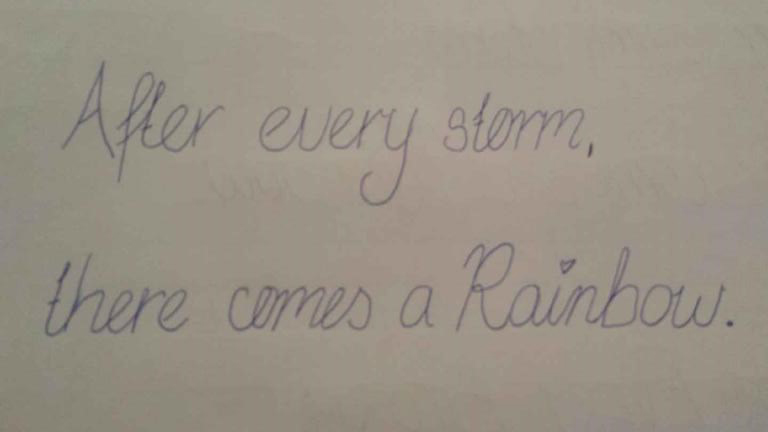 After every storm,
there comes a Rainbow.